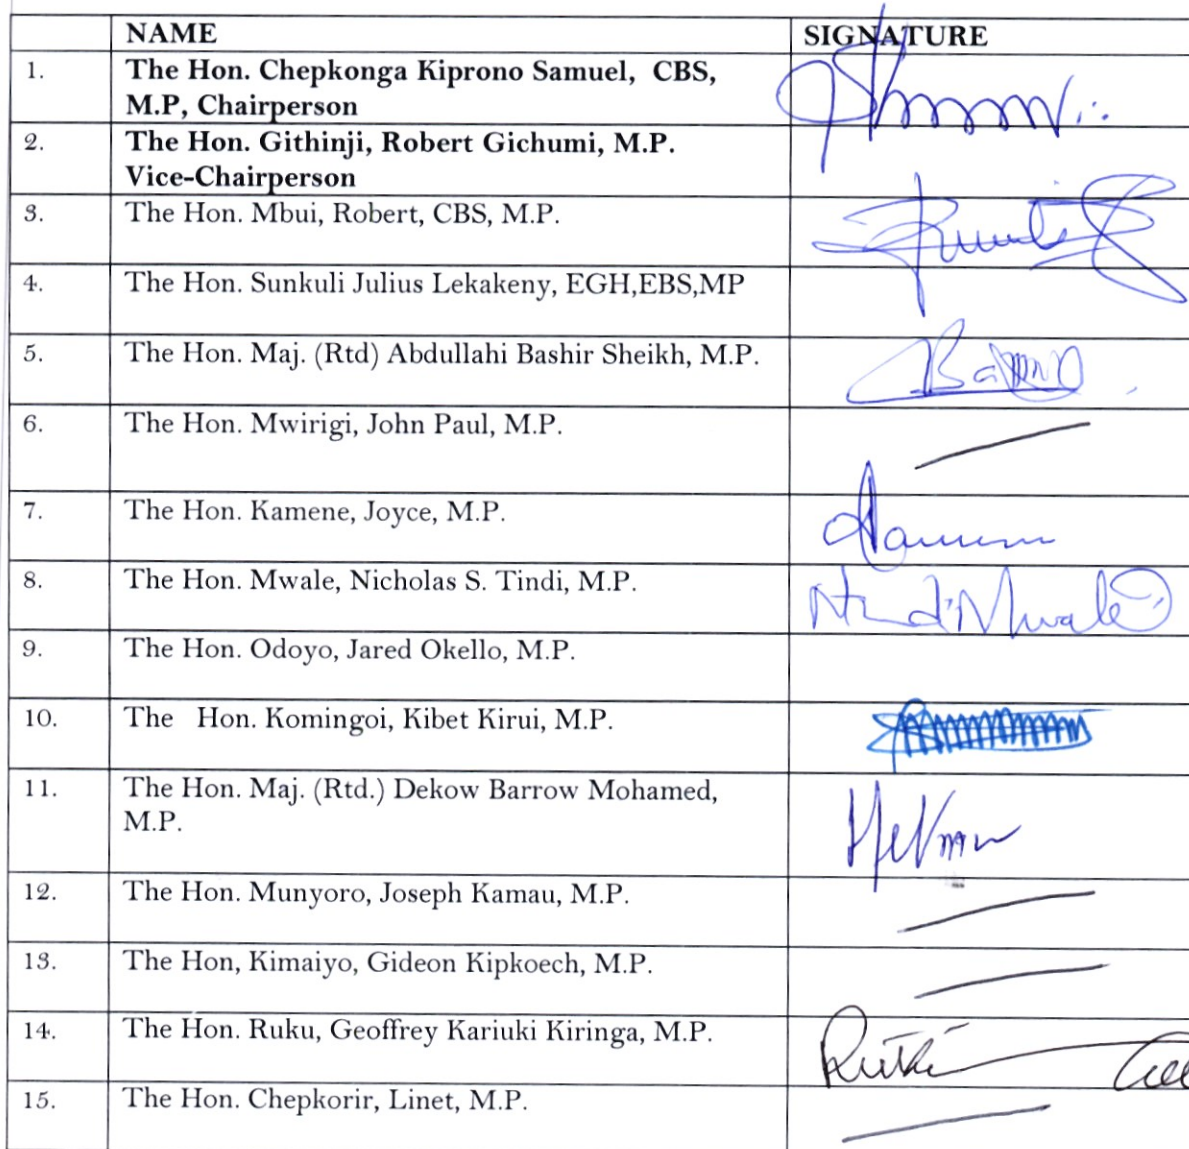 NAME SIGNATURE
1. The Hon. Chepkonga Kiprono Samuel, CBS,
M.P, Chairperson
2. The Hon. Githinji, Robert Gichumi, M.P.
Vice-Chairperson
3. The Hon. Mbui, Robert, CBS, M.P.
4. The Hon. Sunkuli Julius Lekakeny, EGH,EBS,MP
5. The Hon. Maj. (Rtd) Abdullahi Bashir Sheikh, M.P.
6. The Hon. Mwirigi, John Paul, M.P.
7. The Hon. Kamene, Joyce, M.P.
8. The Hon. Mwale, Nicholas S. Tindi, M.P. Mwale
9. The Hon. Odoyo, Jared Okello, M.P.
10. The Hon. Komingoi, Kibet Kirui, M.P.
11. The Hon. Maj. (Rtd.) Dekow Barrow Mohamed,
M.P.
12. The Hon. Munyoro, Joseph Kamau, M.P.
13. The Hon, Kimaiyo, Gideon Kipkoech, M.P.
14. The Hon. Ruku, Geoffrey Kariuki Kiringa, M.P.
15. The Hon. Chepkorir, Linet, M.P.